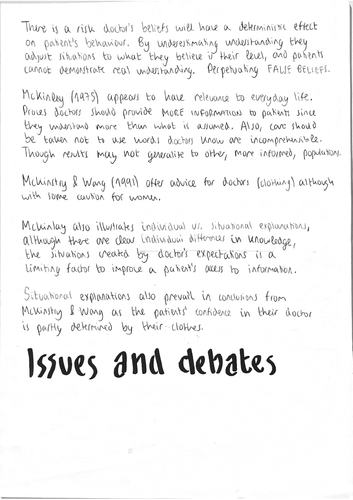 There is a risk doctor's beliefs will have a deterministic effect
on patient's behaviour. By underestimating understanding they
adjust situations to what they believe is their level, and patients
cannot demonstrate real understanding. Perpetuating FALSE BELIEFS.
McKinley (1975) appears to have relevance to everyday life.
Proves doctors should provide MORE INFORMATION to patients since
they understand more than what is assumed. Also, care should
be taken not to use words doctors know are incomprehensible.
Though results may not generalise to other, more informed, populations.
McKinstry & Wang (1991) offer advice for doctors (clothing) although
with some caution for women.
McKinlay also illustrates individual vs. situational explanations,
although there are clear individual differences in knowledge,
the situations created by doctor's expectations is a
limiting factor to improve a patient's access to information.
Situational explanations also prevail in conclusions from
McKinstry & Wang as the patients' confidence in their doctor
is partly determined by their clothes.
Issues and debates